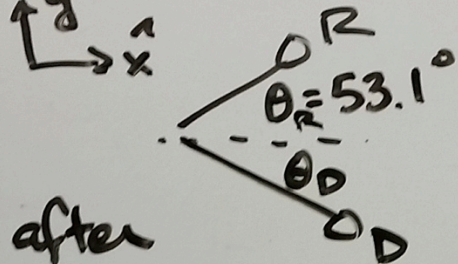 ŷ
x̂
R
θ_R = 53.1°
θ_D
after
D